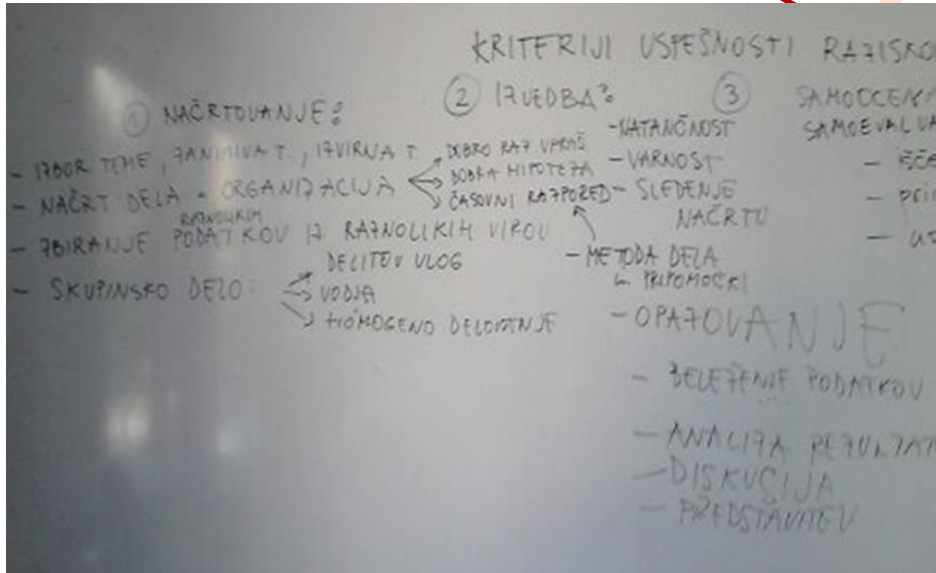 KRITERIJI USPEŠNOSTI RAZISKO
① NAČRTOVANJE:
- IZBOR TEME, ZANIMIVA T., IZVIRNA T.
- NAČRT DELA - ORGANIZACIJA
DOBRO RAZ. VPRAŠ.
DOBRA HIPOTEZA
ČASOVNI RAZPORED
RAZNOLIKIH
- ZBIRANJE PODATKOV IZ RAZNOLIKIH VIROV
- SKUPINSKO DELO:
DELITEV VLOG
VODJA
HOMOGENO DELOVANJE
② IZVEDBA:
- NATANČNOST
- VARNOST
- SLEDENJE
NAČRTU
- METODA DELA
PRIPOMOČKI
- OPAZOVANJE
- BELEŽENJE PODATKOV
- ANALIZA REZULTAT
- DISKUSIJA
- PREDSTAVITEV
③ SAMOOCENA
SAMOEVALVA